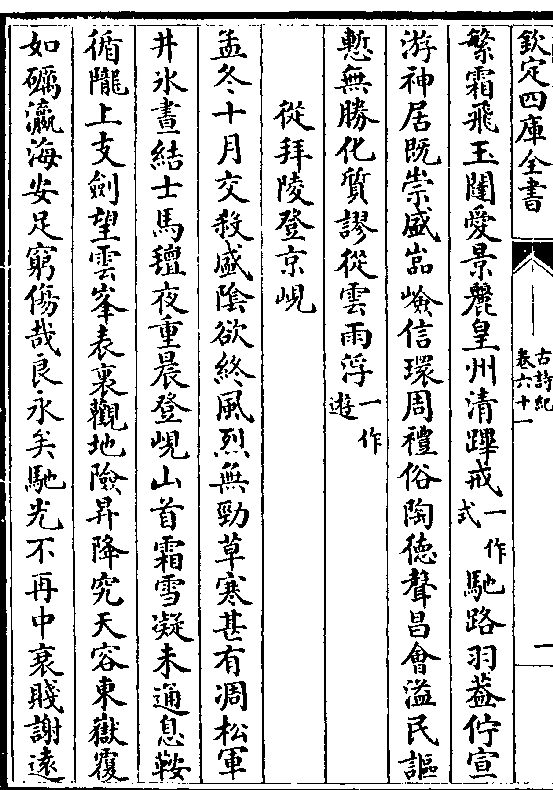 欽定四庫全書
古詩紀
卷六十一
一
繁霜飛玉闥愛景麗皇州清蹕戒一作式馳路羽蓋佇宣
游神居既崇盛嵓嶮信環周禮俗陶德聲昌會溢民謳
慙無勝化質謬從雲雨浮一作遊
從拜陵登京峴
孟冬十月交殺盛陰欲終風烈無勁草寒甚有凋松軍
井氷晝結士馬氊夜重晨登峴山首霜雪凝未通息鞍
循隴上支劍望雲峯表裏觀地險昇降究天容東嶽覆
如礪瀛海安足窮傷哉良永矣馳光不再中衰賤謝遠